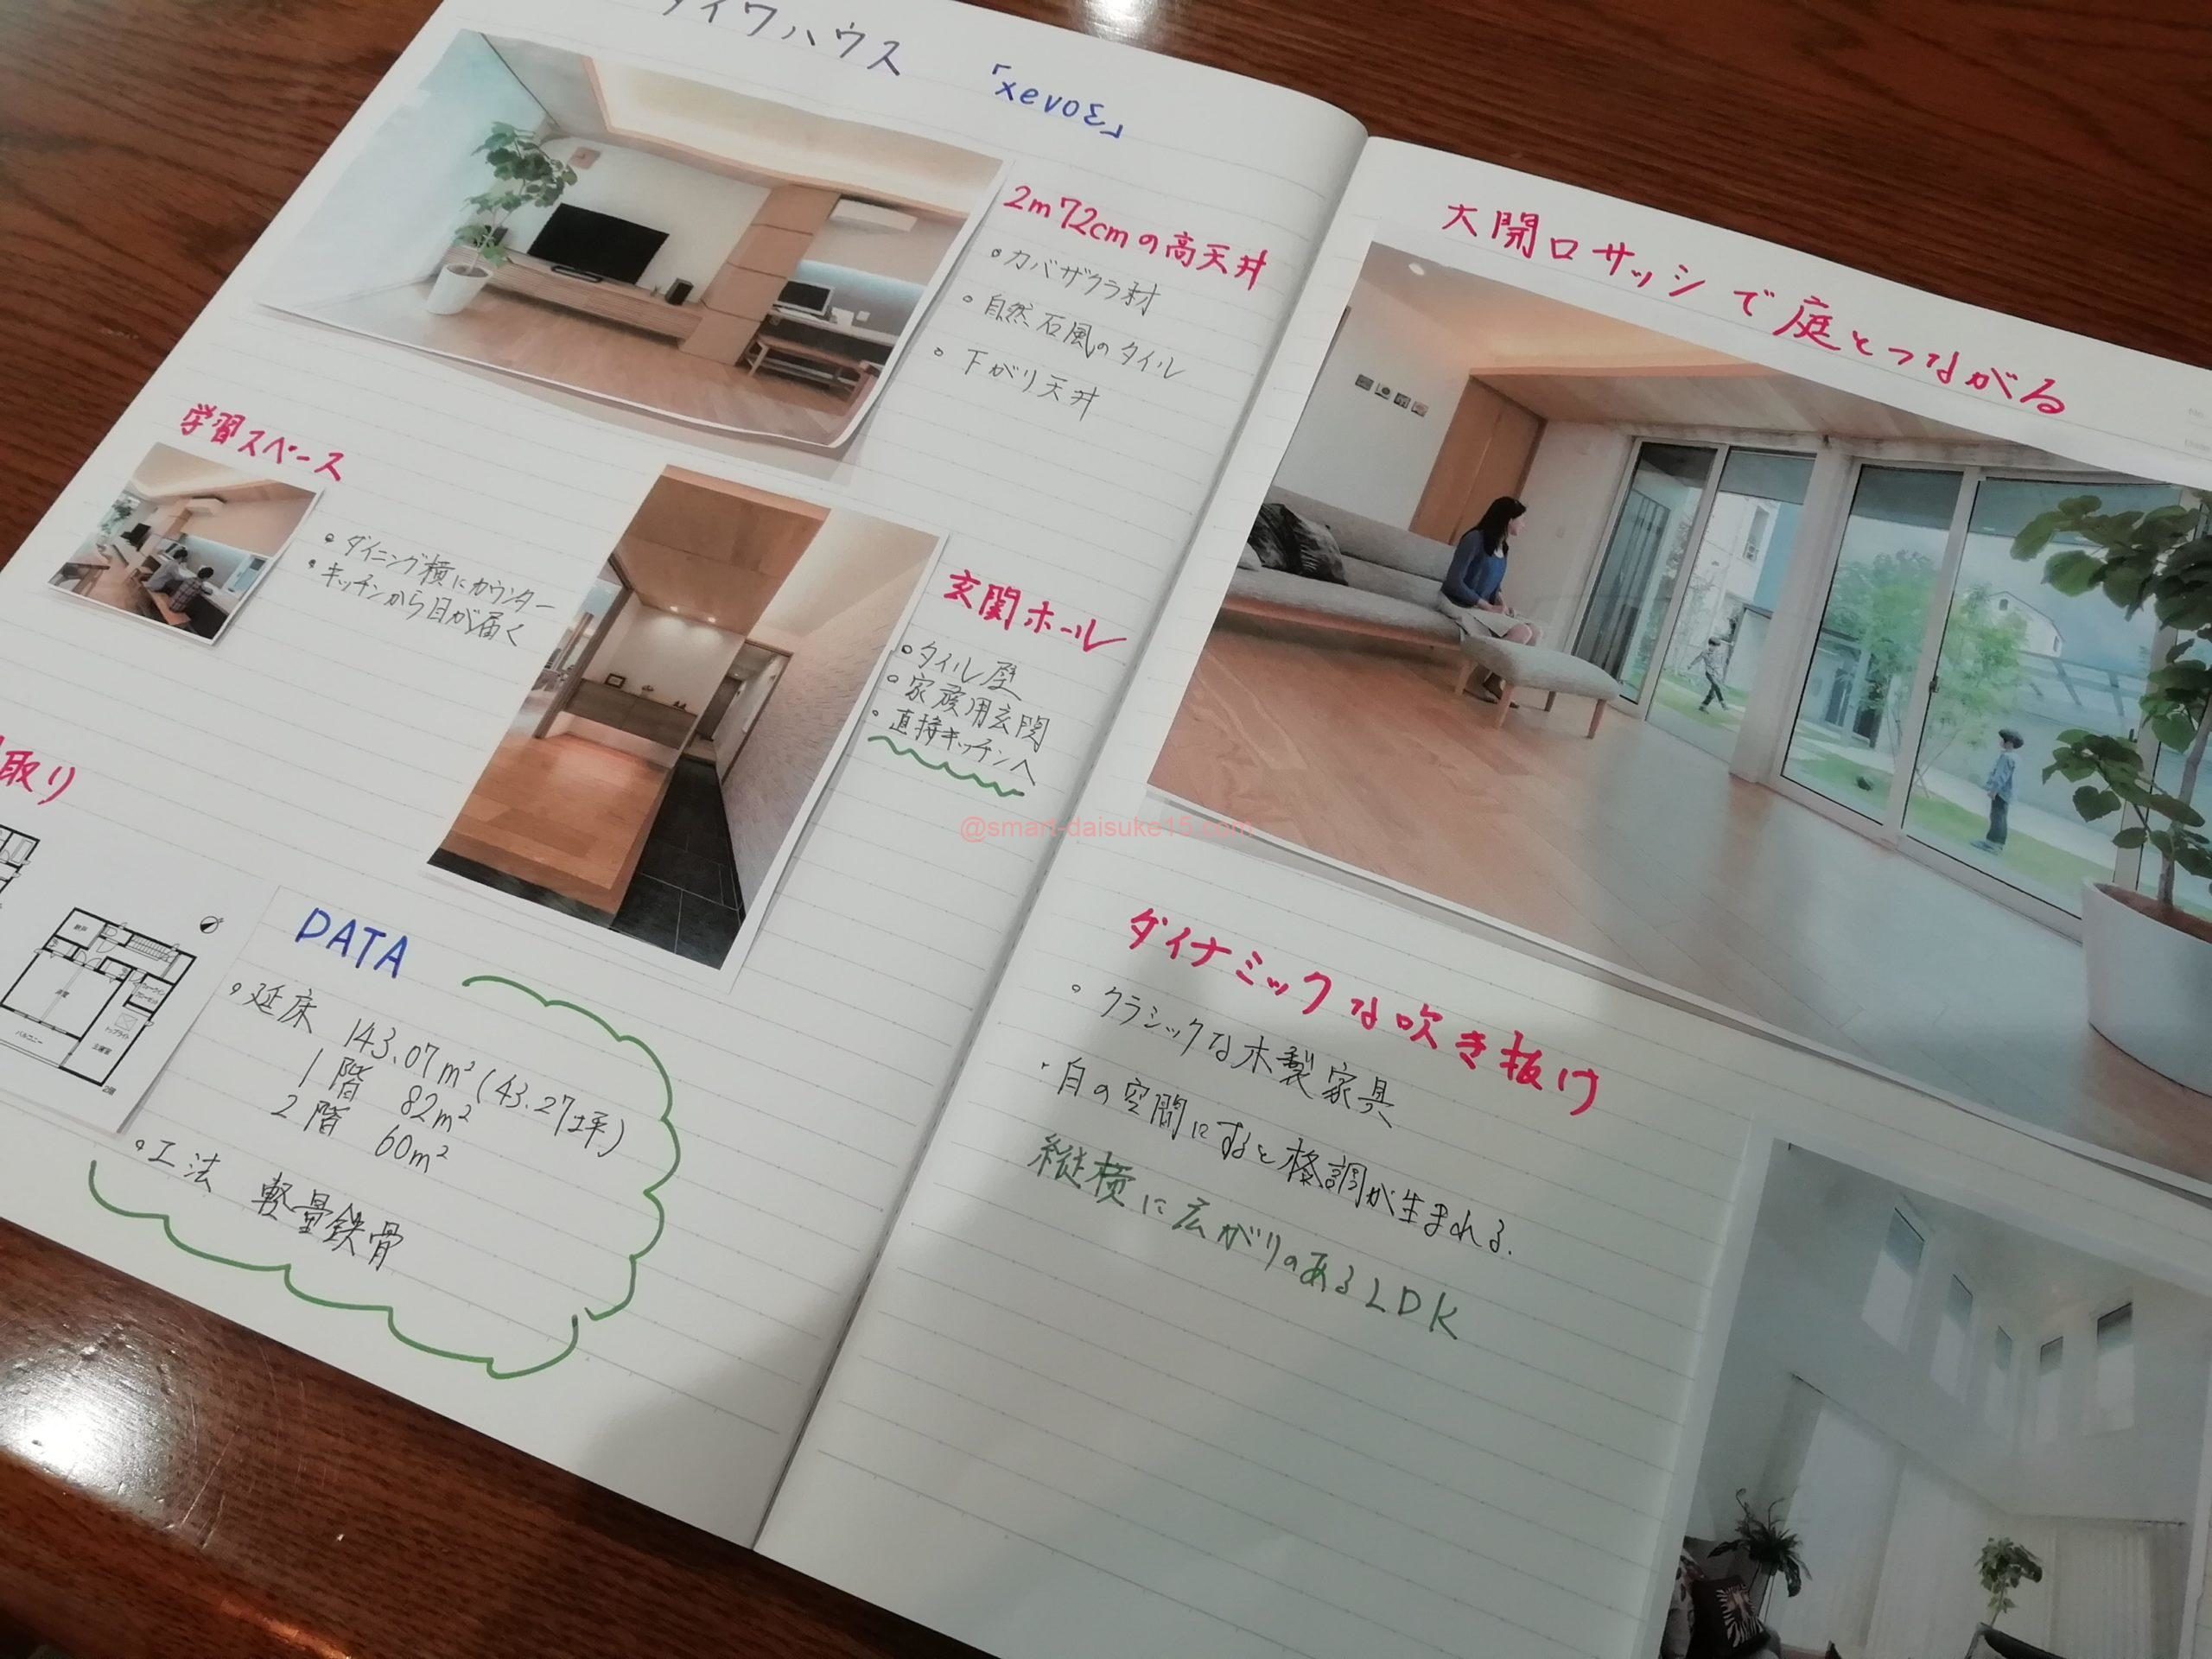 ダイワハウス 「xevoΣ」
2m72cmの高天井
・カバザクラ材
・自然石風のタイル
・下がり天井
学習スペース
・ダイニング横にカウンター
・キッチンから目が届く
玄関ホール
・タイル壁
・家族用玄関
・直接キッチンへ
取り
バルコニー
2階
DATA
・延床 143.07m²(43.27坪)
1階 82m²
2階 60m²
・工法 軽量鉄骨
大開口サッシで庭とつながる
@smart-daisuke15.com
ダイナミックな吹き抜け
・クラシックな木製家具
・白の空間にすると格調が生まれる.
縦横に広がりのあるLDK